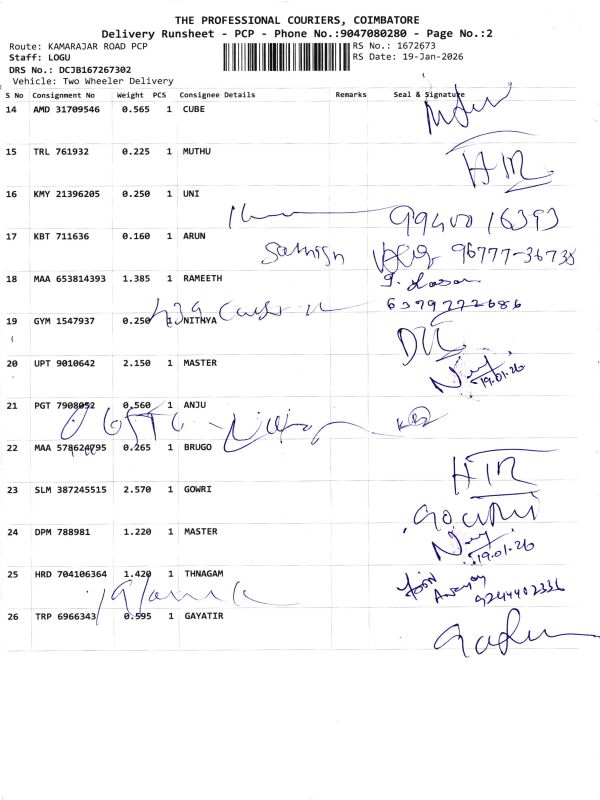 THE PROFESSIONAL COURIERS, COIMBATORE
Delivery Runsheet - PCP - Phone No.:9047080280 - Page No.:2
Route: KAMARAJAR ROAD PCP
Staff: LOGU
DRS No.: DCJB167267302
Vehicle: Two Wheeler Delivery
RS No.: 1672673
RS Date: 19-Jan-2026
S No Consignment No Weight PCS Consignee Details Remarks Seal & Signature
14 AMD 31709546 0.565 1 CUBE
15 TRL 761932 0.225 1 MUTHU
H/R
16 KMY 21396205 0.250 1 UNI
99400 16393
17 KBT 711636 0.160 1 ARUN
Sathish 96777-36738
18 MAA 653814393 1.385 1 RAMEETH
6379772686
19 GYM 1547937 0.250 1 NITHYA
20 UPT 9010642 2.150 1 MASTER
19.01.26
21 PGT 7908052 0.560 1 ANJU
22 MAA 578624795 0.265 1 BRUGO
H/R
23 SLM 387245515 2.570 1 GOWRI
Gowri
24 DPM 788981 1.220 1 MASTER
19.01.26
25 HRD 704106364 1.420 1 THNAGAM
9244402336
26 TRP 6966343 0.595 1 GAYATIR